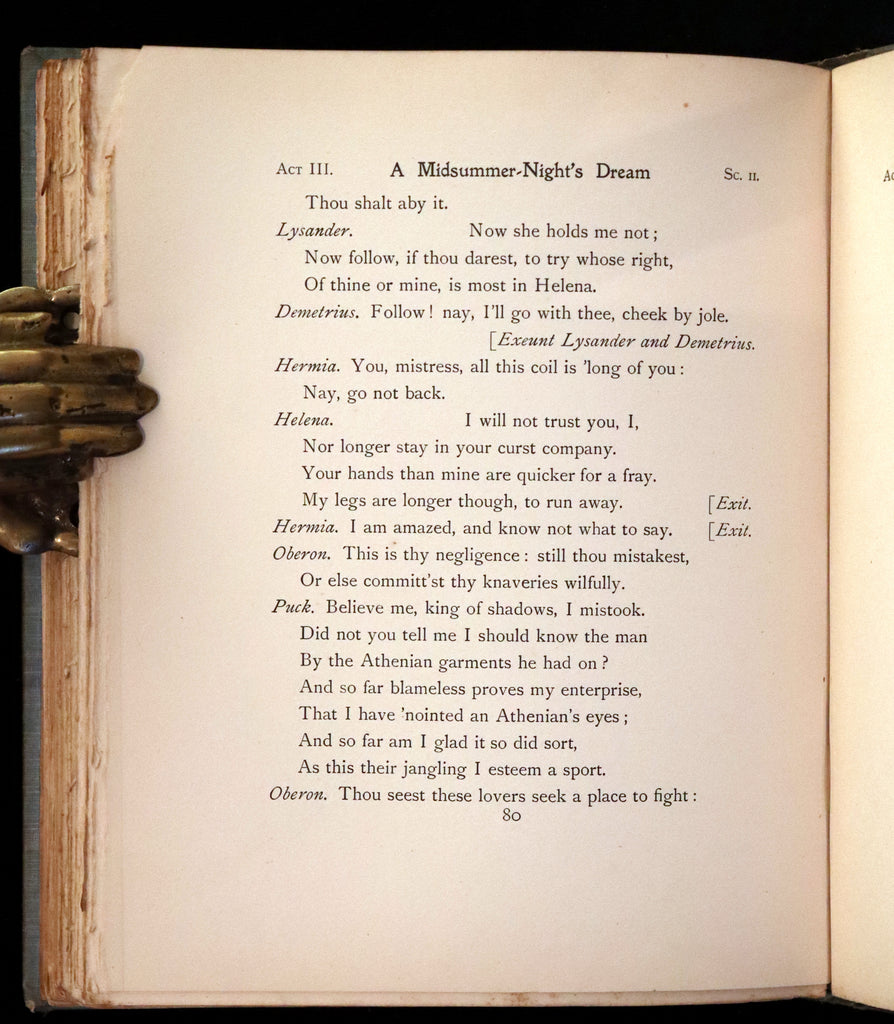 Act III. A Midsummer-Night's Dream Sc. II.
Thou shalt aby it.
Lysander. Now she holds me not;
Now follow, if thou darest, to try whose right,
Of thine or mine, is most in Helena.
Demetrius. Follow! nay, I'll go with thee, cheek by jole.
[Exeunt Lysander and Demetrius.
Hermia. You, mistress, all this coil is 'long of you:
Nay, go not back.
Helena. I will not trust you, I,
Nor longer stay in your curst company.
Your hands than mine are quicker for a fray.
My legs are longer though, to run away. [Exit.
Hermia. I am amazed, and know not what to say. [Exit.
Oberon. This is thy negligence: still thou mistakest,
Or else committ'st thy knaveries wilfully.
Puck. Believe me, king of shadows, I mistook.
Did not you tell me I should know the man
By the Athenian garments he had on?
And so far blameless proves my enterprise,
That I have 'nointed an Athenian's eyes;
And so far am I glad it so did sort,
As this their jangling I esteem a sport.
Oberon. Thou seest these lovers seek a place to fight:
80